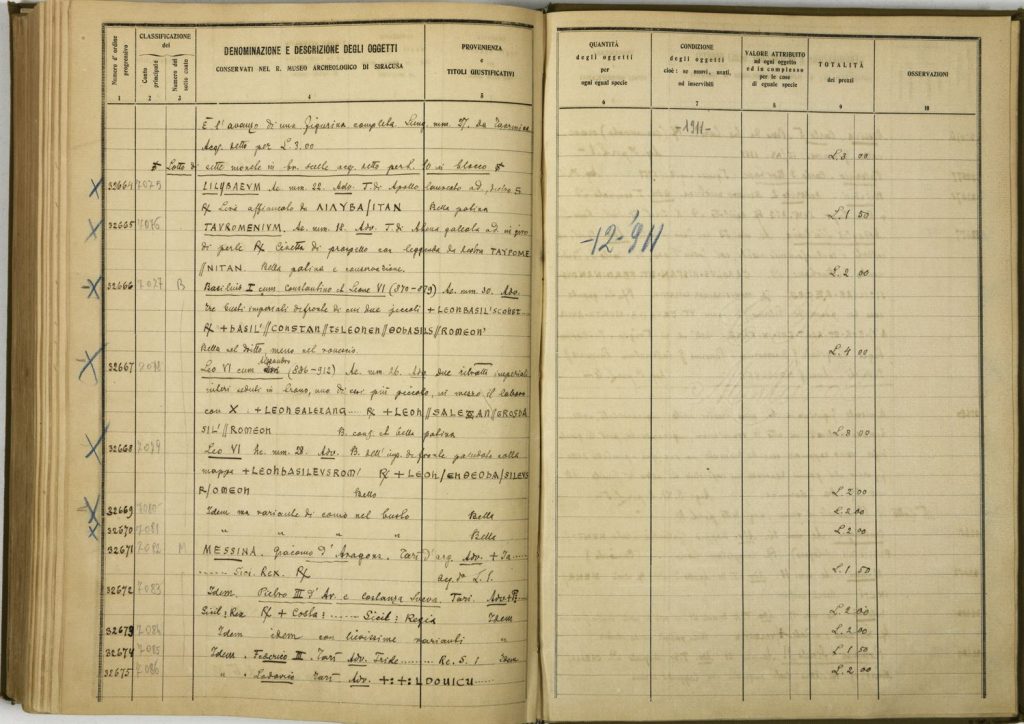 Numero d'ordine progressivo
1
CLASSIFICAZIONE del
Conto principale
2
Numero del sotto conto
3
DENOMINAZIONE E DESCRIZIONE DEGLI OGGETTI
CONSERVATI NEL R. MUSEO ARCHEOLOGICO DI SIRACUSA
4
PROVENIENZA
e
TITOLI GIUSTIFICATIVI
5
QUANTITÀ
degli oggetti
per
ogni egual specie
6
CONDIZIONE
degli oggetti
cioè: se nuovi, usati,
od inservibili
7
VALORE ATTRIBUITO
ad ogni oggetto
ed in complesso
per le cose
di eguale specie
8
TOTALITÀ
dei prezzi
9
OSSERVAZIONI
10
È l'avanzo di una figurina completa. Lung. mm. 27. da Taormina
Acq. detto per L. 3.00
-1911-
L. 3 00
Lotto di sette monete in br. scelte acq. detto per L. in blocco
32664 7075 LILYBAEVM Ae. mm. 22. Adv. T. di Apollo laureato ad.
℞ Lira affiancata da ΛΙΛΥΒΑ/ΙΤΑΝ Bella patina
L. 1 50
32665 7076 TAVROMENIVM. Ae. mm. 18. Adv. T. di Athena galeata ad. in giro
di perle ℞ Civetta di prospetto con leggenda da destra ΤΑΥΡΟΜΕ
//ΝΙΤΑΝ. Bella patina e conservazione.
-12-911
L. 2 00
32666 7077 B Basilius I cum Constantino et Leone VI (870-879) Ae. mm. 30. Adv.
tre busti imperiali di fronte di cui due piccoli + LEONBASIL'SCONST
℞ + bASIL'//CONSTAN//TSLEONEN//ΘObASILS//ROMEON'
Bella nel dritto, meno nel rovescio.
L. 4 00
32667 7078 Leo VI cum Alexandro (886-912) Ae. mm. 26. Adv. due ritratti imperiali
interi seduti in trono, uno di essi più piccolo, nel mezzo il labaro
con X. ℞ + LEOn//SALEΞAN//
SIL'//ROMEON B. cons. et bella patina
L. 3 00
32668 7079 Leo VI Ae. mm. 28. Adv. B. dell'imp. di fronte paludato colla
mappa + LEOnbASILEVSROM/ ℞ + LEOn/EnΘEObA/SILEVS
R/OMEON Bello
L. 2 00
32669 7080 Idem ma variante di conio nel busto Bella
L. 2 00
32670 7081 " " " Bella
L. 2 00
32671 7082 M MESSINA. Giacomo d'Aragona. Tarì d'arg. Adv. + Ia......
...... Sici. Rex. ℞ acq. do L. 1.
L. 1 50
32672 7083 Idem. Pietro III d'Ar. e costanza Sveva. Tarì. Adv. + P:...
Sicil: Rex ℞ + Costa: ...... Sicil: Regia Idem
L. 2 00
32673 7084 Idem idem con lievissime varianti "
L. 2 00
32674 7085 Idem. Federico III. Tarì Adv. Fride......... Re. S. I Idem
L. 1 50
32675 7086 " Lodovico Tarì Adv. +:+:LDOUICU......
L. 2 00